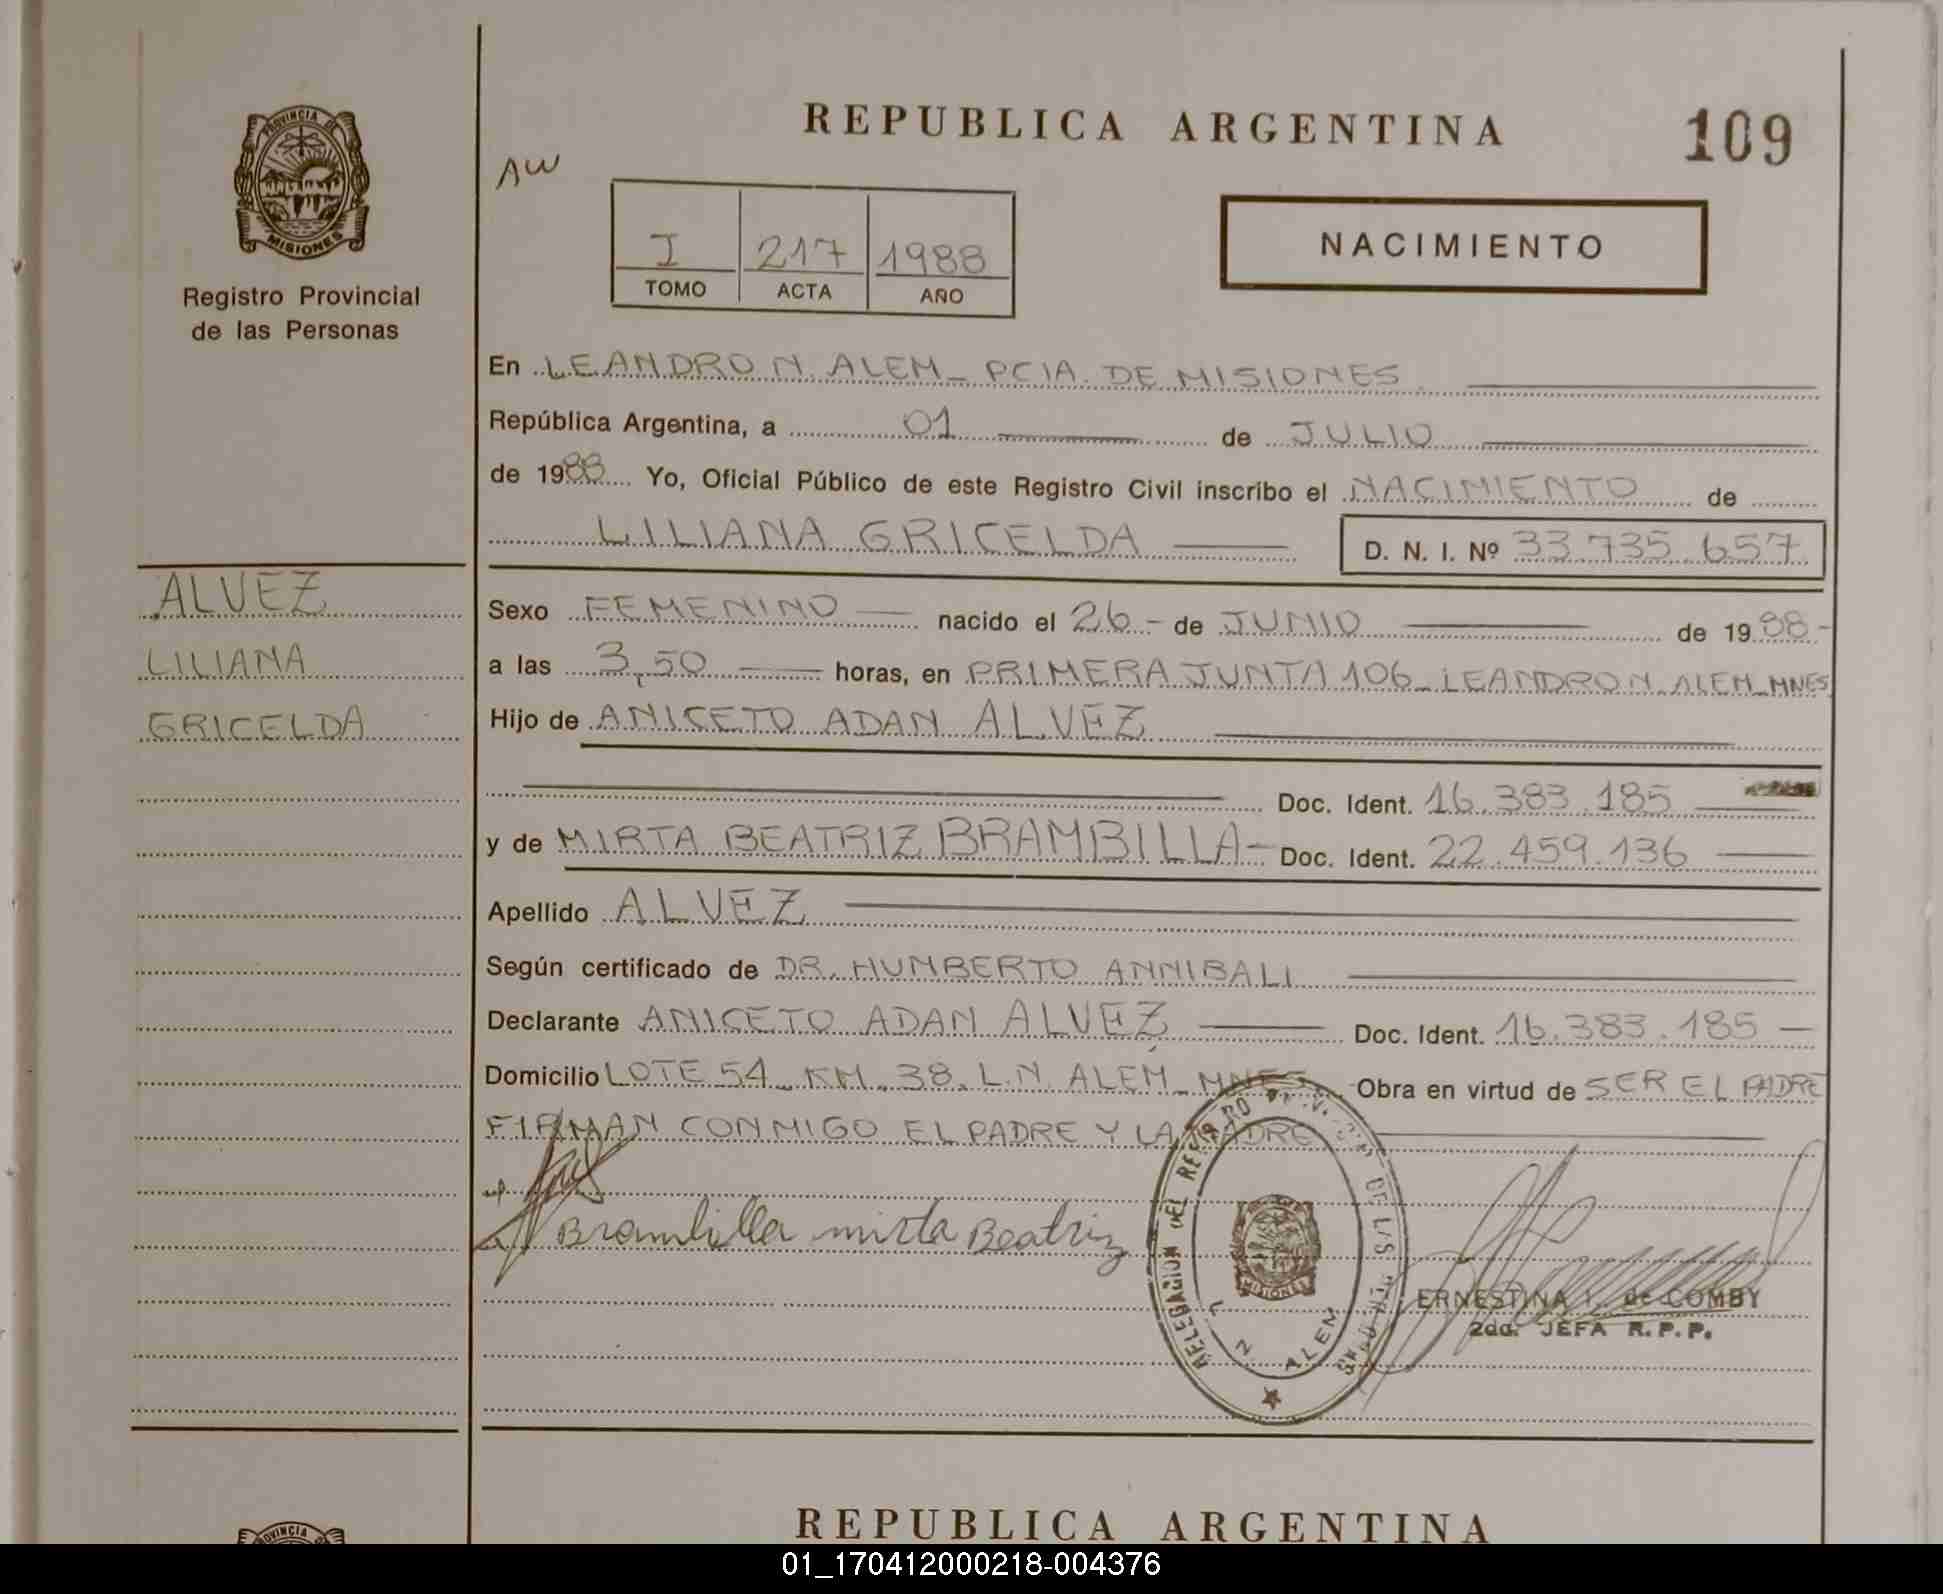 REPUBLICA ARGENTINA
109
PROVINCIA DE
MISIONES
Registro Provincial
de las Personas
AW
I 217 1988
TOMO ACTA AÑO
NACIMIENTO
En LEANDRO N. ALEM - PCIA. DE MISIONES
República Argentina, a 01 de JULIO
de 1988 Yo, Oficial Público de este Registro Civil inscribo el NACIMIENTO de
LILIANA GRICELDA D. N. I. Nº 33.735.657
ALVEZ
LILIANA
GRICELDA
Sexo FEMENINO nacido el 26 - de JUNIO de 1988 -
a las 3,50 horas, en PRIMERA JUNTA 106 - LEANDRO N. ALEM - MNES
Hijo de ANICETO ADAN ALVEZ
Doc. Ident. 16.383.185
y de MIRTA BEATRIZ BRAMBILLA - Doc. Ident. 22.459.136
Apellido ALVEZ
Según certificado de DR. HUMBERTO ANNIBALI
Declarante ANICETO ADAN ALVEZ Doc. Ident. 16.383.185 -
Domicilio LOTE 54 - KM. 38. L.N. ALEM - MNES - Obra en virtud de SER EL PADRE
FIRMAN CONMIGO EL PADRE Y LA MADRE
Brambilla mirta Beatriz
DELEGACION DEL REGISTRO PROVINCIAL DE LAS PERSONAS
MISIONES
L. N. ALEM
ERNESTINA L. de COMBY
2da. JEFA R.P.P.
PROVINCIA
REPUBLICA ARGENTINA
01_170412000218-004376